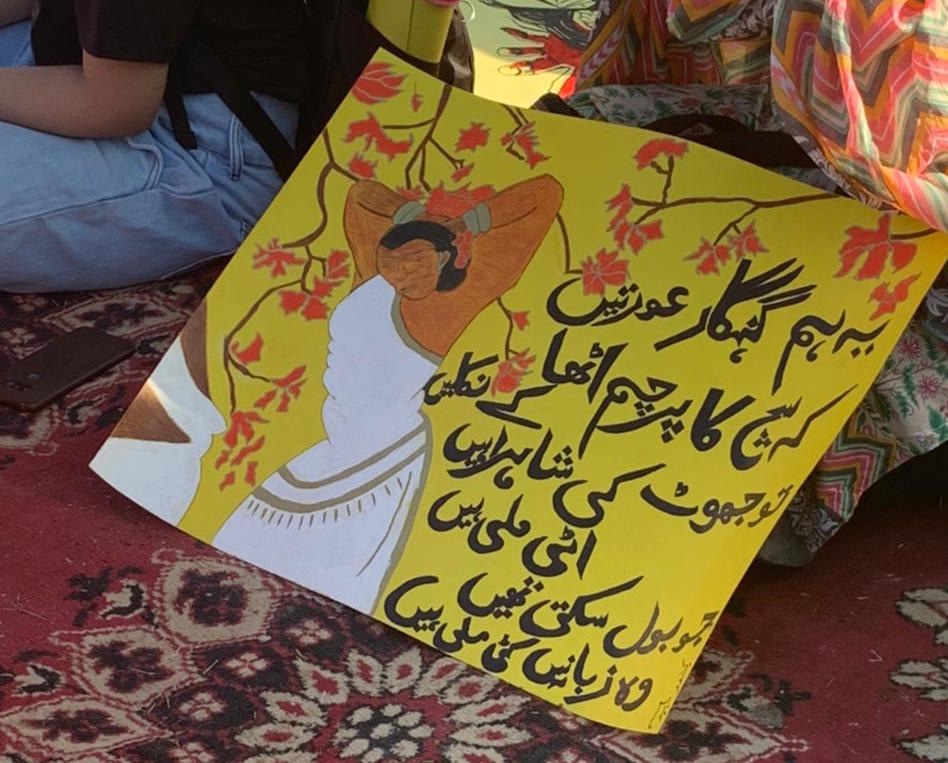 یہ ہم گنہگار عورتیں
کہ سچ کا پرچم اٹھا کے نکلیں
تو جھوٹ کی شاہراہیں
اٹی ملی ہیں
جو بول سکتی تھیں
وہ زبانیں کٹی ملی ہیں